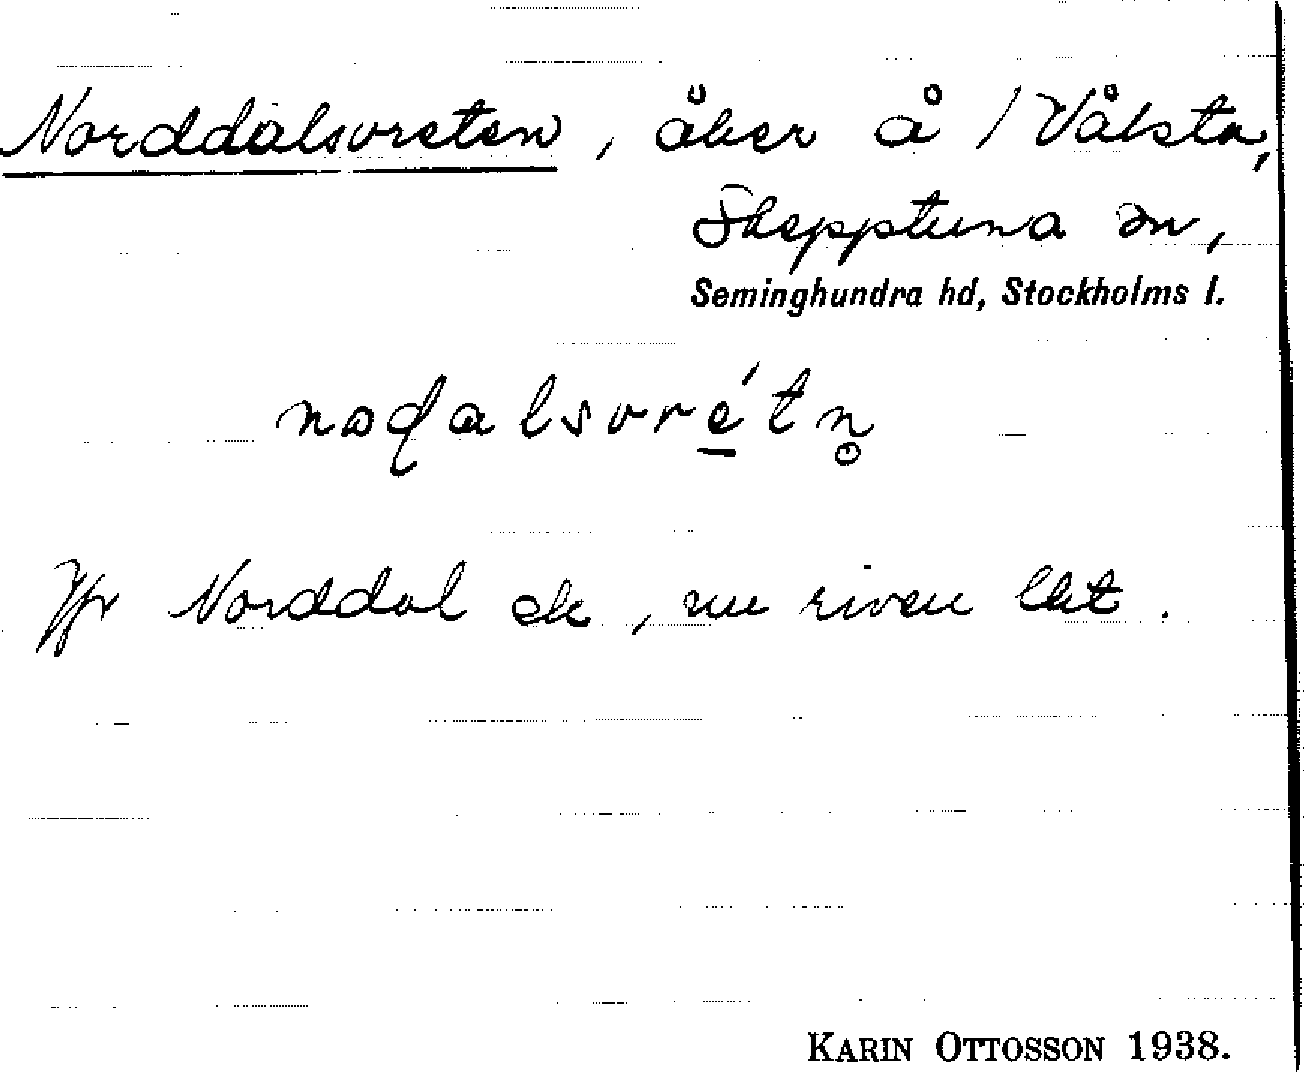 Norddalsvreten, åker å 1 Vålsta,
Skepptuna sn,
Seminghundra hd, Stockholms l.
nodalsvrétn̥
Jfr Norddal ek, nu riven lht.
KARIN OTTOSSON 1938.